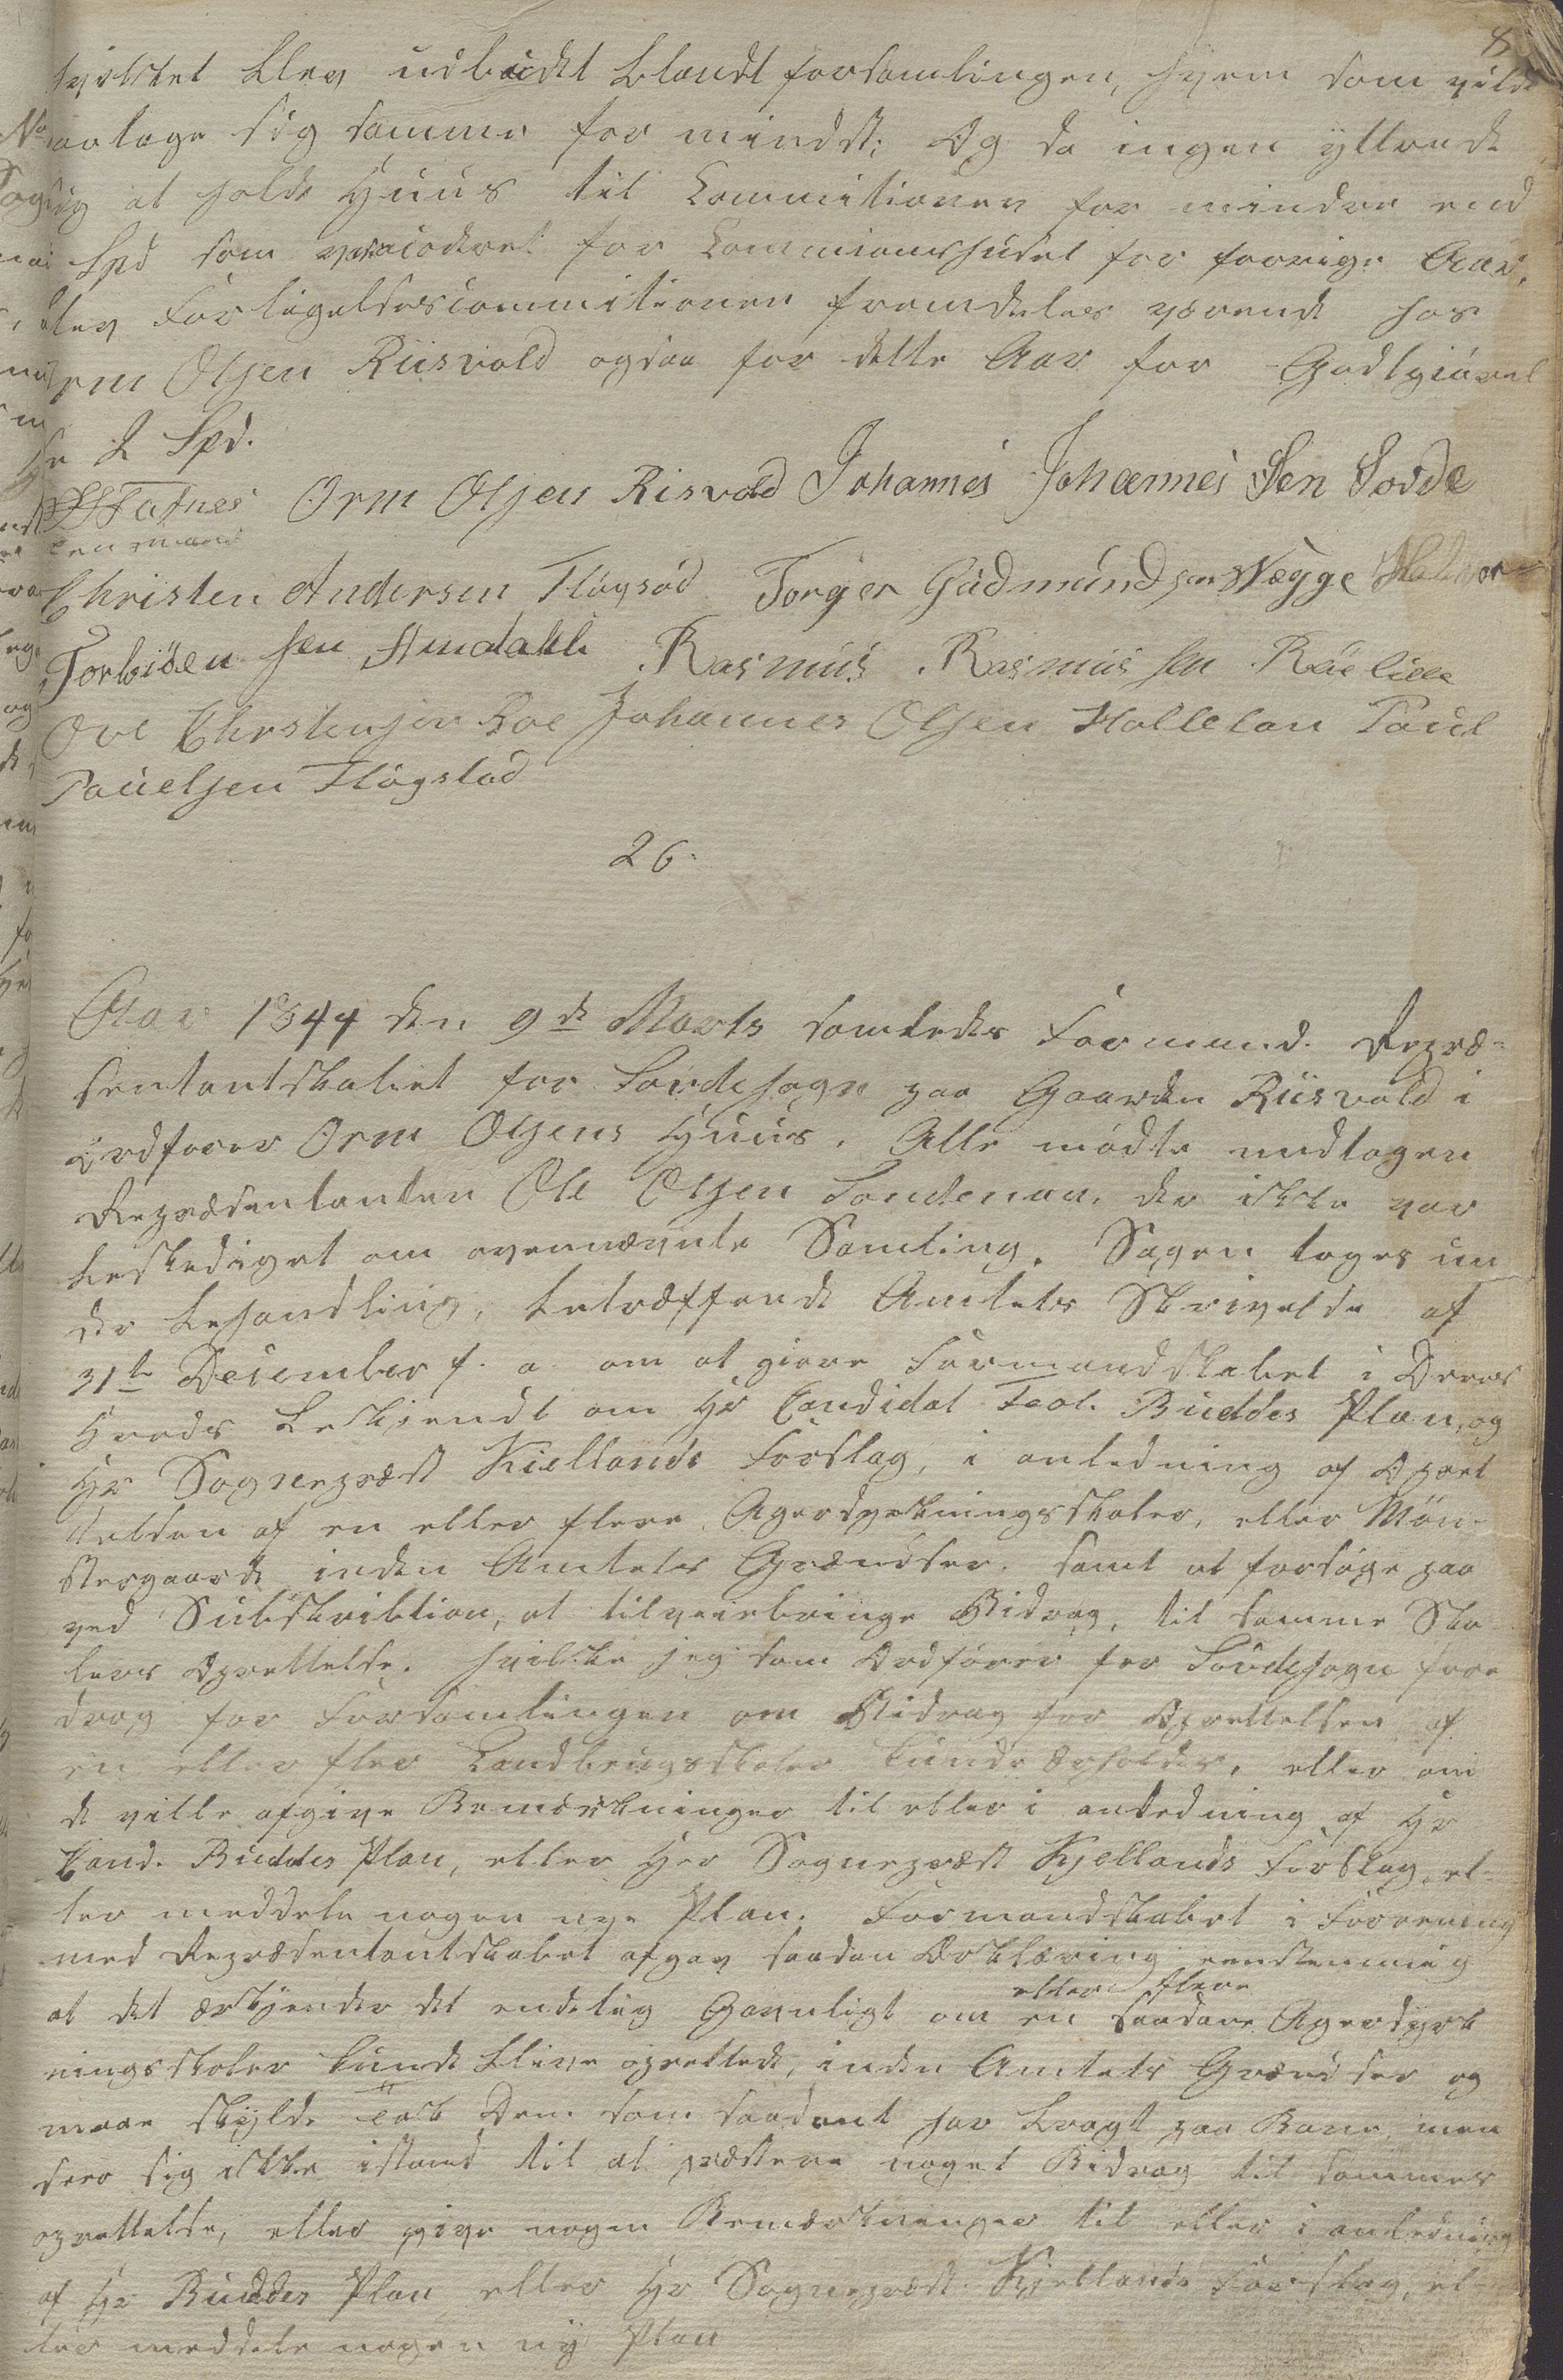 8
hvilket blev udbudt blandt forsamlingen, hvem som vilde
antage sig samme for mindst; Og da ingen yttrede
sig at holde Huus til Commitionen for mindre end
Spd som var accoderet for Commionshuset for forrige Aar,
blev Forligelsescommitionen fremdeles værende hos
Orm Olsen Riisvold ogsaa for dette Aar for Godtgiørel
se 2 Spd.
Orm Olsen Risvold Johannes Johannes Sen Sovde
Lensmand
Christen Andersen Fløgstad Torger Gudmundsen Vægge Halvor
Torbiøen sen Amdahl Rasmus Rasmus sen Røelille
Ove Chrstensen Roe Johannes Olsen Hallelan Paul
Pauelsen Fløgstad
26.
Aar 1844 den 9de Marts samledes Formand. Repræ-
sentantskabet for Søvdesogn paa Gaarden Riisvold i
Ordfører Orm Olsens Huus. Alle mødte undtagen
Repræsentanten Ole Olsen Sandenaa, der ikke var
beskediget om ovennævnte Samling. Sagen toges un
der behandling, betræffende Amtets Skrivelse af
31te December f. a. om at giøre Formandskabet i Deres
Hreds bekjendt om Hr Candidat Teol. Buddes Plan, og
Hr Sognepræst Kiellands Forslag, i anledning af Opret
telsen af en eller flere Agerdyrkningsskoler, eller Møn-
stergaarde inden Amtets Grændser. samt at forsøge paa
ved Subskribtion, at tilveiebringe Bidrag, til samme Sko
lers Oprettelse. hvilke jeg som Ordfører for Søvdesogn fore
drog for Forsamlingen om Bidrag for Oprettelsen af
en eller fler Landbrugsskoler kunde erholdes, eller om
de ville afgive Bemærkninger til eller i anledning af Hr
Cand. Buddes Plan, eller Her Sognepræst Kjellands Forslag, el-
ler meddele nogen nye Plan. Formandskabet i Forening
med Repræsentantskabet afgav saadan Erklæring eenstemmig
eller flere
at det erkjender det endelig Gavnligt om en saadane Agerdyrk
ningsskoler kunde blive oprettede, inden Amtets Grændser og
maae skylde Tak Dem som saadant har bragt paa Bane, men
seer sig ikke istand til at præstere noget Bidrag til sammes
oprettelse, eller give nogen Bemærkninger til eller i anledning
af Hr Buddes Plan eller Hr Sognepræst Kjellands Forslag, el-
ler meddele nogen ny Plan